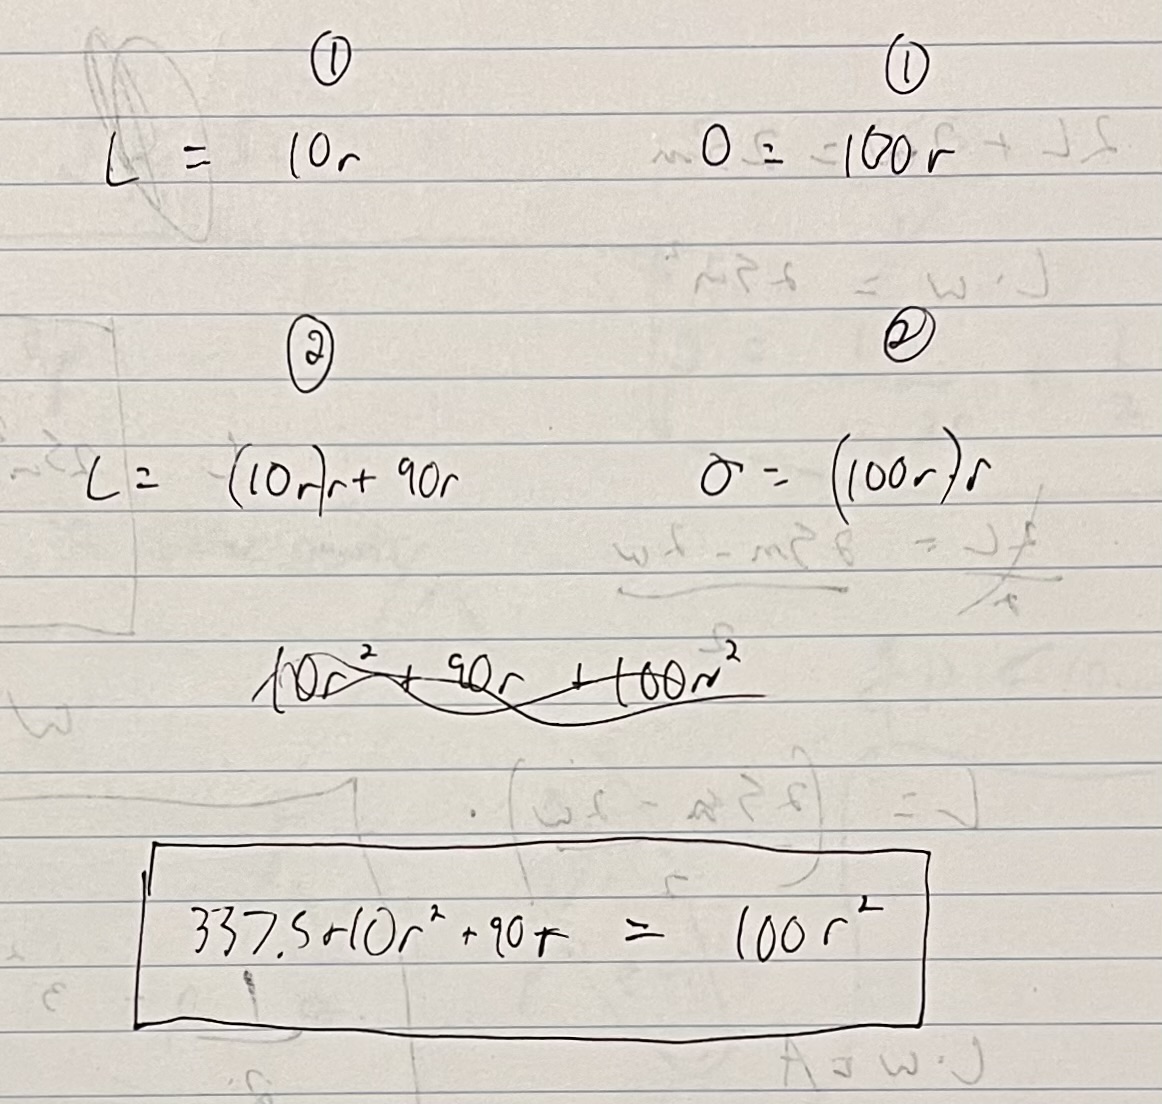 ① ①
L = 10r O = 100r
② ②
L = (10r)r + 90r O = (100r)r
10r² + 90r + 100r²
337.5+10r² + 90r = 100r²